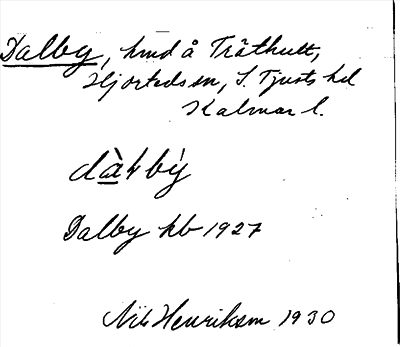 Dalby, hmd å Tråthult,
Hjorteds sn, S. Tjusts hd
Kalmar l.
dàɫbẏ
Dalby kb 1927
Nils Henriksson 1930